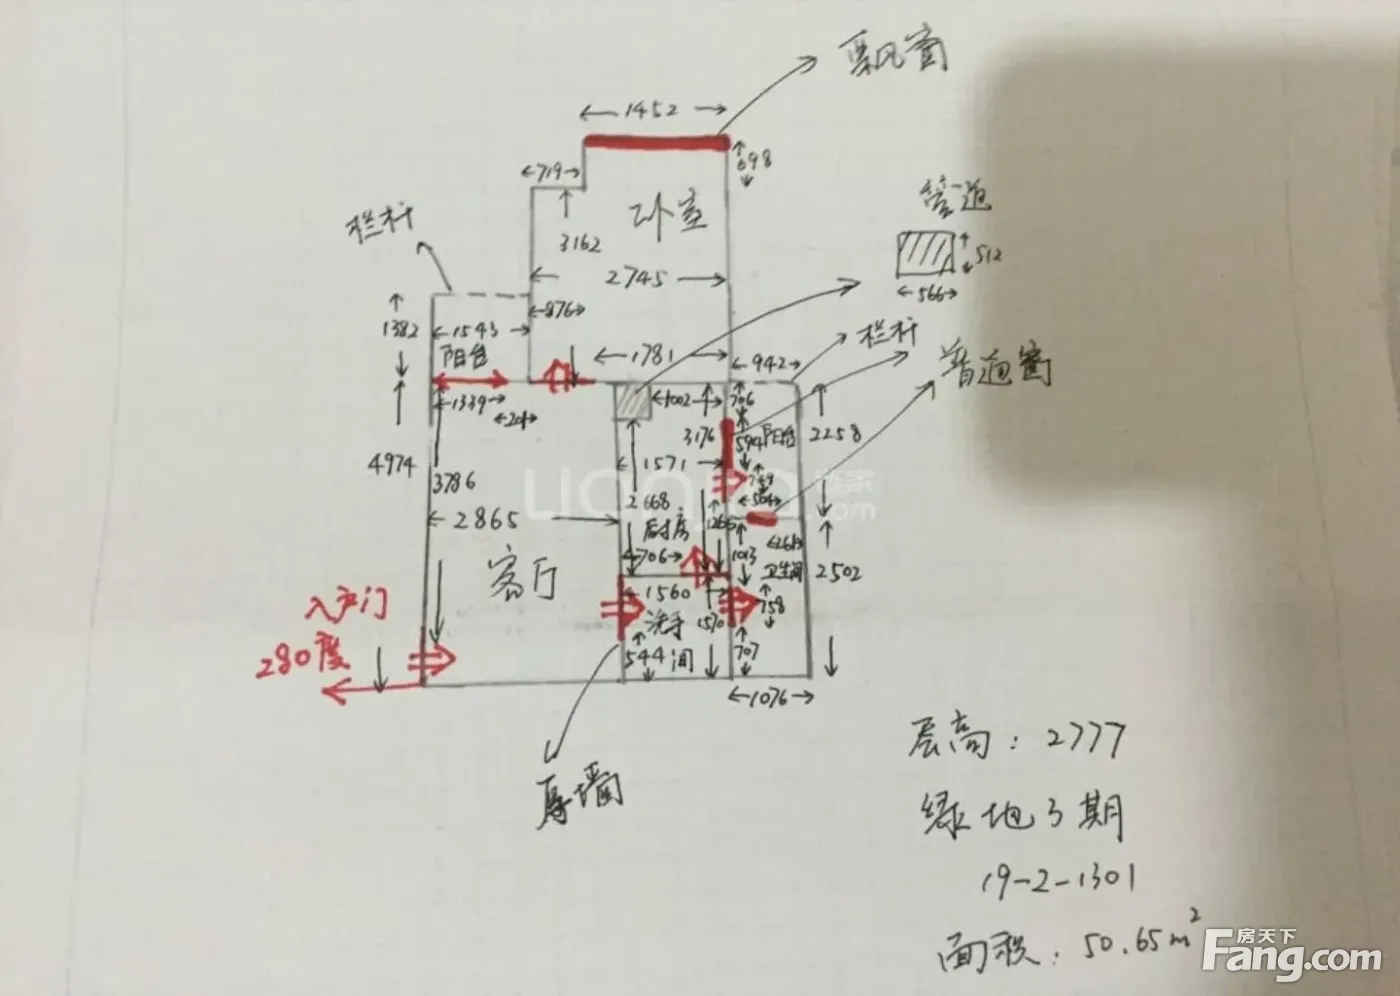 飘窗
1452
698
719
卧室
管道
栏杆
3162
512
2745
566
876
1382
1543
栏杆
阳台
1781
942
普通窗
1339
204
1002
706
3176
594
阳台
2258
4974
3786
1571
759
504
2668
1265
2865
厨房
706
1013
261
卫生间
2502
客厅
1560
758
入户门
洗手间
1570
280度
544
707
1076
厚墙
层高：2777
绿地3期
19-2-1301
面积：50.65m²
房天下
Fang.com